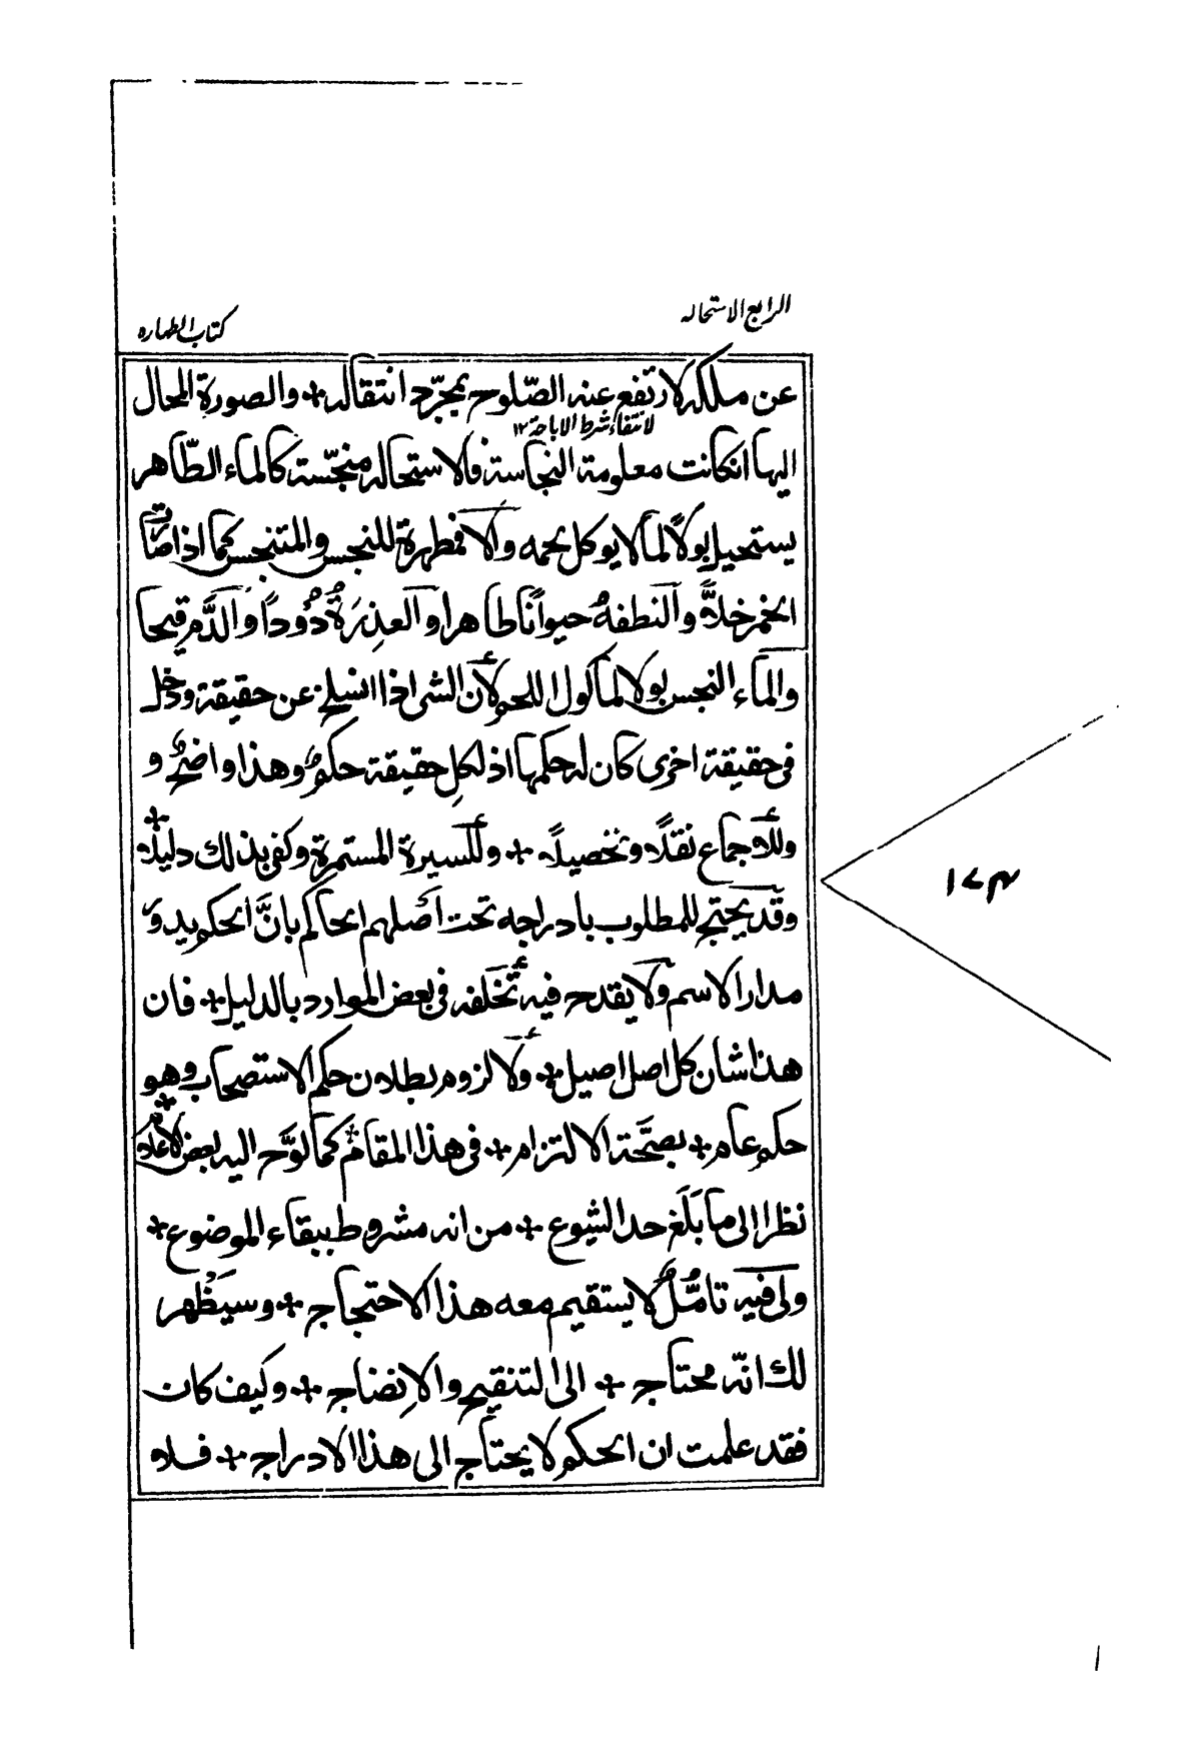 الرابع الاستحاله
كتاب الطهاره
عن ملكه لارتفع عنه الصّلوح بمجرّد انتقاله + والصورة المحال
لانتفاء شرط الاباحة ١٢
اليها انكانت معلومة النجاسة فالاستحاله منجّسة كالماء الطّاهر
يستحيل بولًا لما لا يوكل لحمه والا فمطهرة للنجس والمتنجس كما اذا صارت
الخمر خلًّا والنطفةُ حيوانًا طاهرا والعذِرَةُ دُودًا والدَّم قيحا
والماء النجس بولا لمأكول اللحم لأن الشئ اذا انسلخ عن حقيقة ودخل
فى حقيقة اخرى كان له حكمها اذ لكلِ حقيقة حكمٌ وهذا واضحٌ و
وللاجماع نقلًا وتحصيلًا + وللسيرة المستمرة وكفى بذلك دليلًا +
وقد يحتج للمطلوب بادراجه تحت أصلهم الحاكم بانَّ الحكم يدور
مدار الاسم ولا يقدح فيه تخلفه فى بعض الموارد بالدليل + فان
هذا شان كل اصل اصيل + ولا لزوم بطلان حكم الاستصحاب وهو
حكم عام + بصحّة الالتزام + فى هذا المقام + كما لوَّح اليه بعض الاعلام +
نظرا الى ما بَلَغ حد الشيوع + من انه مشروط ببقاء الموضوع +
ولى فيه تامُّلٌ لا يستقيم معه هذا الاحتجاج + وسيَظْهر
لك انّه محتاج + الى التنقيح والاِنضاج + وكيف كان
فقد علمت ان الحكم لا يحتاج الى هذا الادراج + فلا
١٧٣